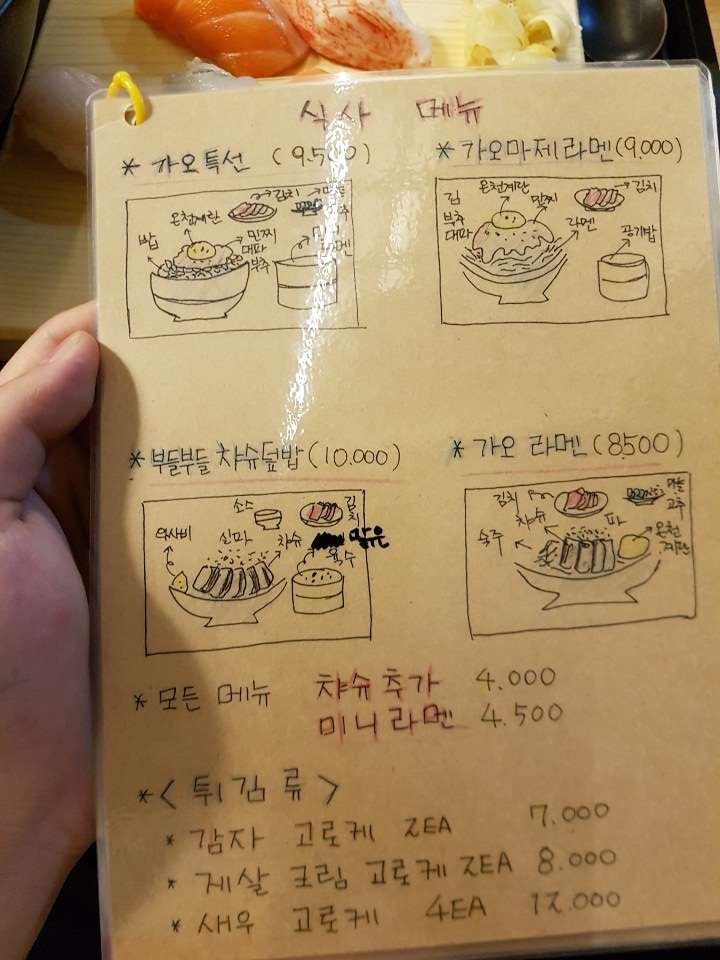 식사 메뉴
* 가오특선 (9.500)
김치
온천계란
밥
민찌
대파
부추
* 가오마제라멘(9,000)
김
부추
대파
온천계란
민찌
라멘
김치
공기밥
* 부들부들 챠슈덮밥(10.000)
소스
김치
와사비
실파
챠슈
맑은
육수
* 가오 라멘 (8500)
김치
챠슈
파
숙주
온천
계란
마늘
고추
* 모든 메뉴 챠슈추가 4.000
미니라멘 4.500
* < 튀김류 >
* 감자 고로케 2EA 7.000
* 게살 크림 고로케 2EA 8.000
* 새우 고로케 4EA 12.000